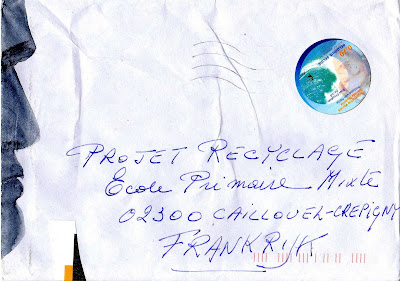 PROJET RECYCLAGE
Ecole Primaire Mixte
02300 CAILLOUEL-CREPIGNY
FRANKRIJK